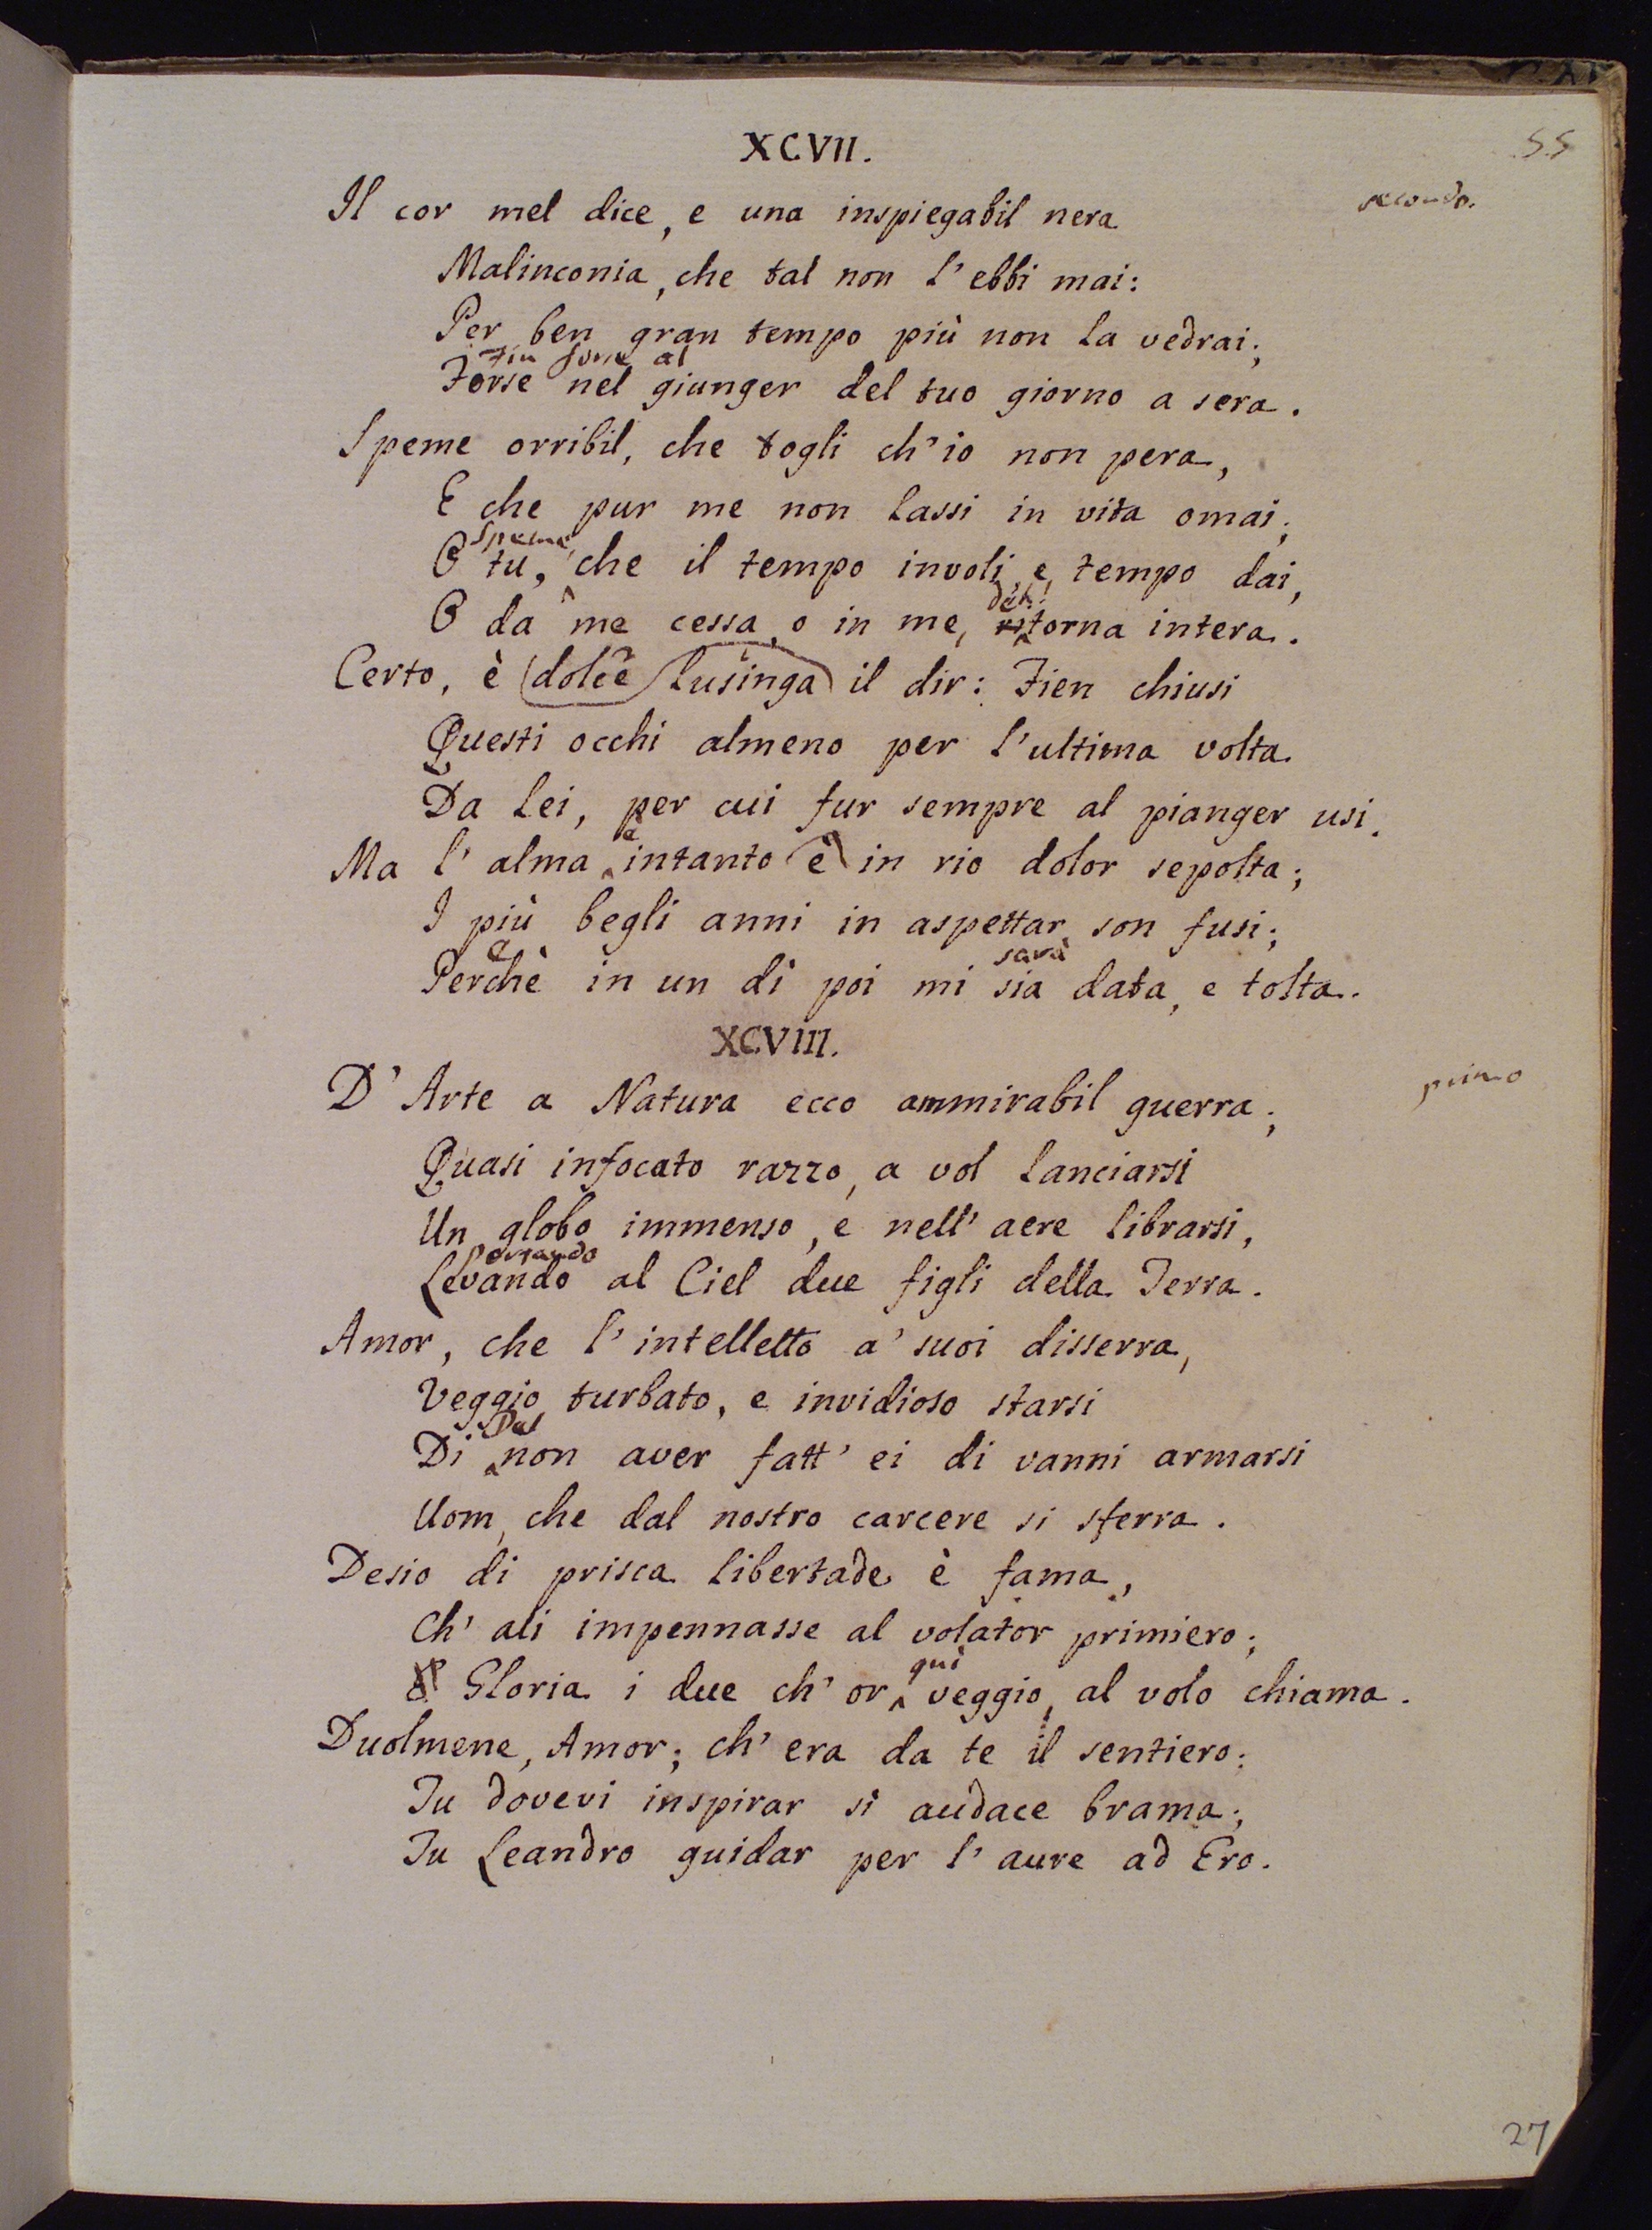 XCVII.
55
secondo.
Il cor mel dice, e una inspiegabil nera
Malinconia, che tal non l'ebbi mai:
Per ben gran tempo più non la vedrai;
Fia forse al
Forse nel giunger del tuo giorno a sera.
Speme orribil, che togli ch'io non pera,
E che pur me non lassi in vita omai;
Speme,
O tu, che il tempo involi, e tempo dai,
deh!
O da me cessa, o in me, ritorna intera.
Certo, è dolce lusinga il dir: Fien chiusi
Questi occhi almeno per l'ultima volta
Da lei, per cui fur sempre al pianger usi.
è
Ma l'alma intanto è in rio dolor sepolta;
I più begli anni in aspettar son fusi;
E
sarà
Perchè in un dì poi mi sia data, e tolta.
XCVIII.
primo
D'Arte a Natura ecco ammirabil guerra;
Quasi infocato razzo, a vol lanciarsi
Un globo immenso, e nell'aere librarsi,
Portando
Levando al Ciel due figli della Terra.
Amor, che l'intelletto a' suoi disserra,
Veggio turbato, e invidioso starsi
Dal
Di non aver fatt'ei di vanni armarsi
Uom, che dal nostro carcere si sferra.
Desio di prisca libertade è fama,
Ch'ali impennasse al volator primiero;
quì
Gloria i due ch'or veggio, al volo chiama.
Duolmene, Amor; ch'era da te il sentiero;
Tu dovevi inspirar sì audace brama;
Tu Leandro guidar per l'aure ad Ero.
27